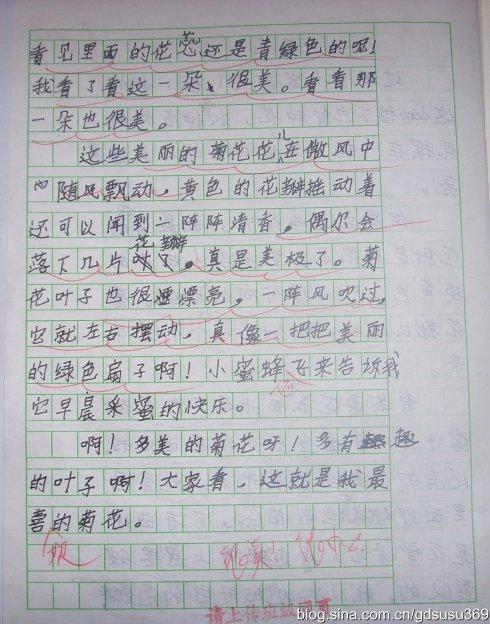 看见里面的花蕊还是青绿色的呢！
我看了看这一朵，很美。看看那
一朵也很美。
这些美丽的菊花花儿在微风中
随风飘动，黄色的花瓣摇动着
还可以闻到一阵阵清香。偶尔会
落下几片花瓣。真是美极了。菊
花叶子也很漂亮，一阵风吹过，
它就左右摆动，真像一把把美丽
的绿色扇子啊！小蜜蜂飞来告诉我
它早晨采蜜的快乐。
啊！多美的菊花呀！多有趣
的叶子啊！大家看，这就是我最
喜的菊花。
请上传班级网页
blog.sina.com.cn/gdsusu369